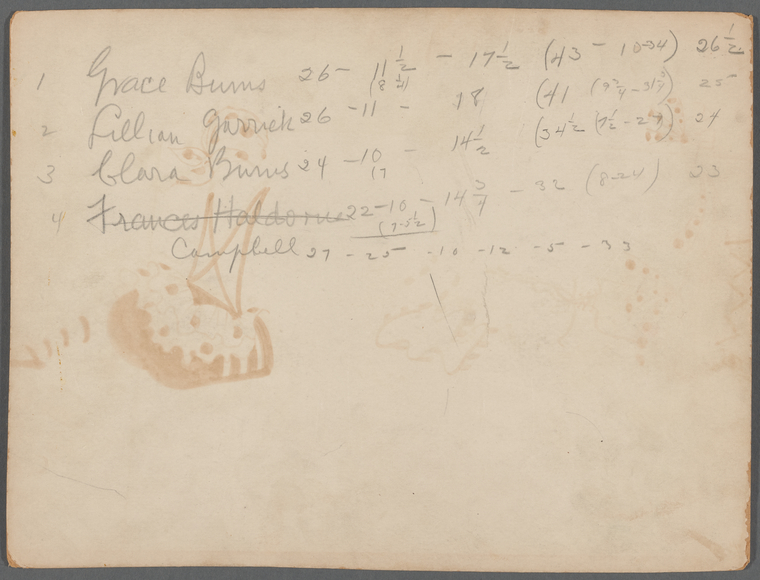 1 Grace Burns 26 - 11 1/2 - 17 1/2 (43 - 10-34) 26 1/2
2 Lillian Garrick 26 - 11 - 18 (41 (9 3/4 - 31 3/4) 25
3 Clara Burns 24 - 10 - 14 1/2 (34 1/2 (7 1/2 - 27) 24
4 Frances 22 - 10 - 14 3/4 - 32 (8-24) 23
(7-5 1/2)
Campbell 27 - 25 - 10 - 12 - 5 - 33